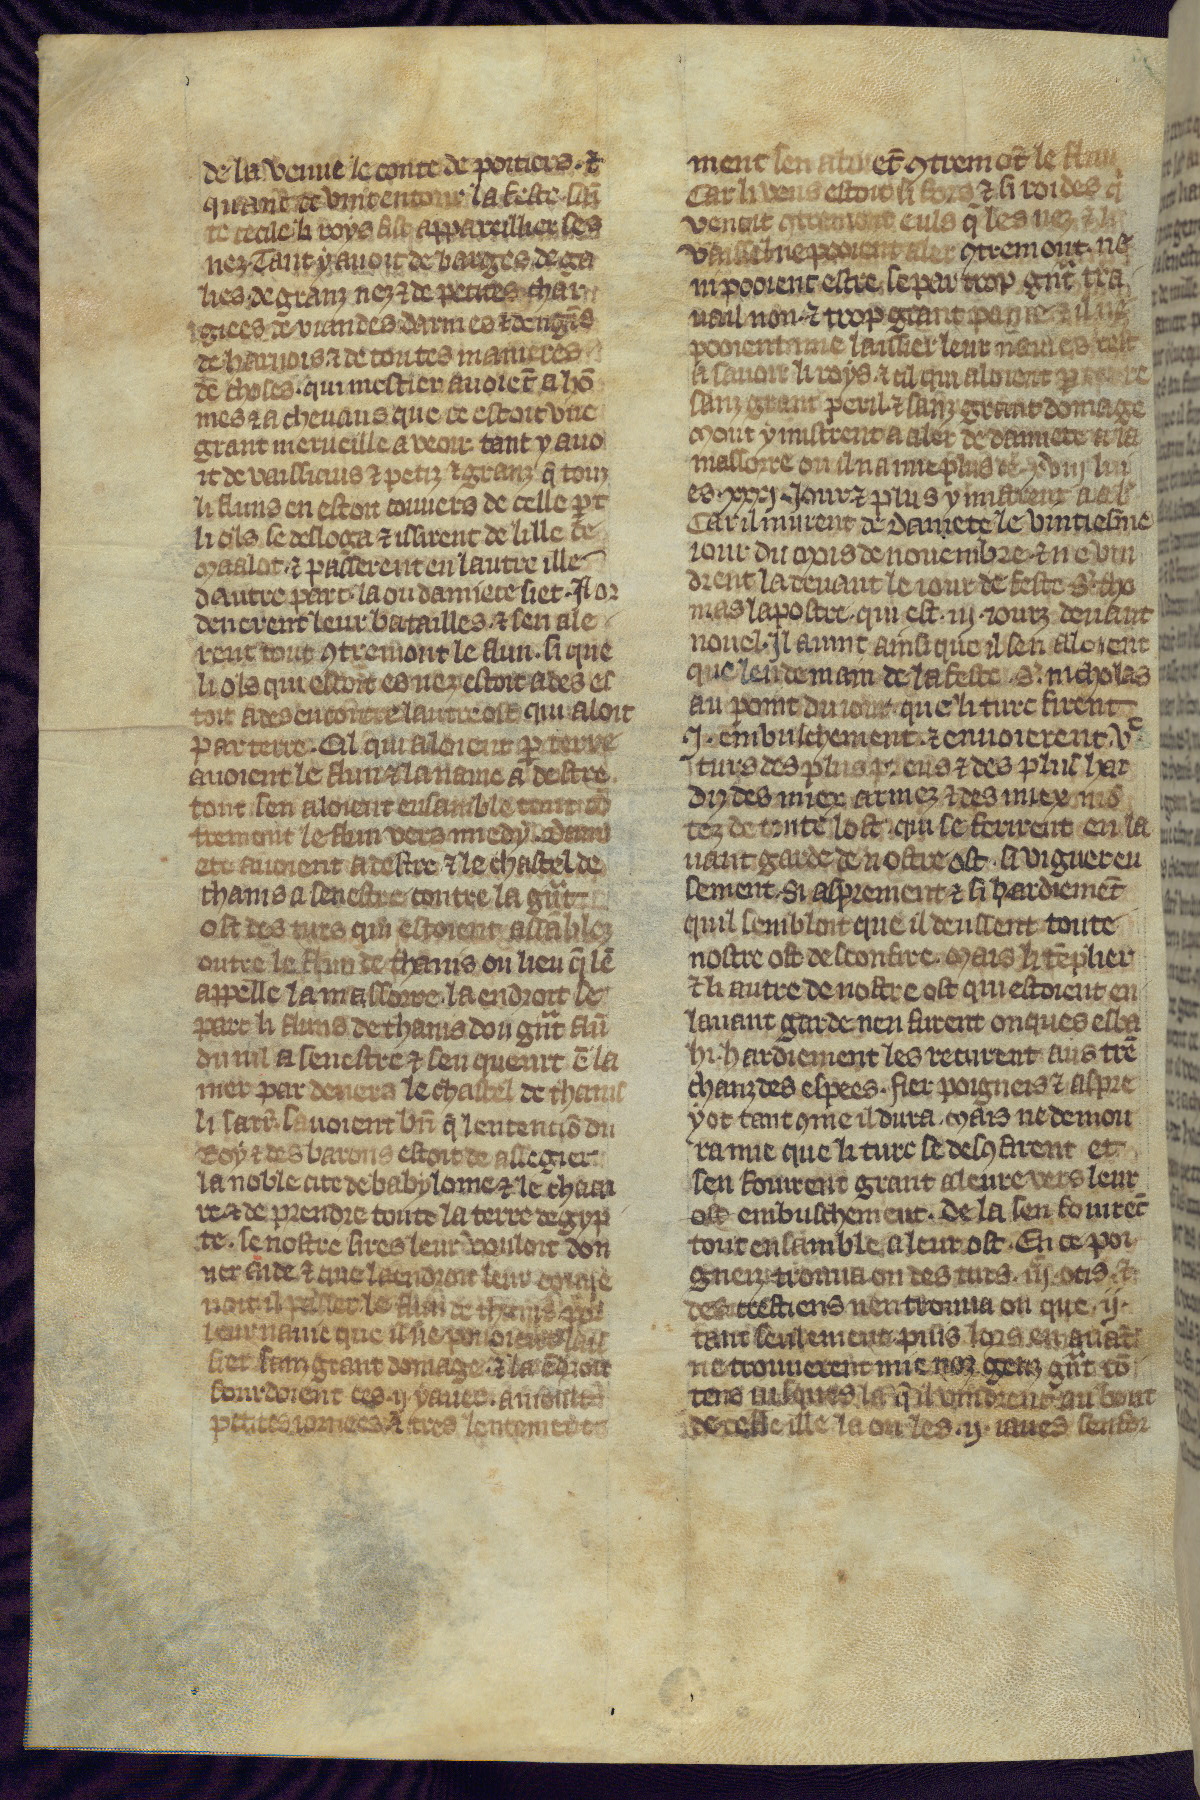 de la venue le conte de poitiers. et
quant ce vint entour la feste sain
te cecile li roys fist appareillier ses
nez. Tant y auoit de barges. de ga
lies. de granz nez ⁊ de petites. char
giees de viandes. darmes ⁊ dengīs
de harnois ⁊ de toutes manieres
de choses. qui mestier auoiēt a hō
mes ⁊ a cheuaus que ce estoit vne
grant merueille a veoir. tant y auo
it de vaissiaus ⁊ petiz ⁊ granz q̄ touz
li fluns en estoit couuers de celle p̄t
li ols se desloga ⁊ issirent de lille de
maalot. ⁊ passerent en lautre ille
dautre part. la ou damiete siet. Il or
denerent leur batailles. ⁊ sen ale
rent tout ꝯtremont le flun. si que
li ols qui estoit es nez estoit ades es
toit ades encoste lautre ost qui aloit
par terre. Cil qui aloient p̱ terre
auoient le flun ⁊ la nauie a destre.
tout sen aloient ensamble tout cō
tremont le flun vers miedy. dami
ete auoient a destre ⁊ le chastel de
thanis a senestre contre la gr̄nt
ost des turs qui estoient assāblez
outre le flun de thanis ou lieu q̄ lē
appelle la massorre. la endroit se
part li fluns de thanis dou gr̄nt flū
du nil a senestre ⁊ sen queurt ē la
mer par deuers le chastel de thanis
li sarr̄. sauoient bn̄ q̄ lentenciō du
Roy ⁊ des barons estoit de assegier
la noble cite de babyloine ⁊ le chaau
re ⁊ de prendre toute la terre degyp
te. se nostre sires leur vouloit don
ner aide ⁊ que la endroit leur couue
noit il passer le flun de thanis.
leur nauie que il ne pouoient lais
sier sanz grant domage. ⁊ la ēdroit
sourdoient ces .ij. yaues. a moult
petites iornees. ⁊ tres lentemēt
ment sen aloiēt ꝯtremōt le flun
Car li vens estoit si fors ⁊ si roides q̄
venoit ꝯtremont euls q̄ les nez ⁊ li
vaissel ne pooient aler ꝯtremont. ne
ni pooient estre se par trop gr̄nt tra
uail non. ⁊ trop grant peyne. ⁊ il ne
pooient mie laissier leur nauies. cest
a sauoir li roys. ⁊ cil qui aloient p̱ terre
sanz grant peril. ⁊ sanz grant domage
Mout y mistrent a aler de damiete a la
massorre ou il na mie plus de .xviij. liu
es. xxxj. Jour ⁊ plus y mistrent a al̄
Car il murent de Damiete le vintiesme
iour du mois de nouembre. ⁊ ne vin
drent la deuant le iour de feste .S. tho
mas lapostre. qui est .iij. iourz deuant
nouel. Il auint ainsi que il sen aloient
que lendemain de la feste .S. nicholas
au point du iour. que li turc firent
.I. embuschement. ⁊ enuoierent .Vᶜ
turs des plus preus ⁊ des plus har
diz des miex armez ⁊ des miex mō
tez de toute lost. qui se ferirent en la
uant garde de nostre ost. si viguereu
sement. Si asprement ⁊ si hardiemēt
quil sembloit que il deussent toute
nostre ost desconfire. Mais li tēplier
⁊ li autre de nostre ost qui estoient en
lauant garde nen furent onques esba
hi. hardiement les recurent aus trē
chanz des espees. fier poigneis ⁊ aspre
y ot tant ꝯme il dura. Mais ne demou
ra mie que li turc se desꝯfirent et
sen fouirent grant aleure vers leur
ost embuschement. De la sen fouirēt
tout ensamble a leur ost. En ce poi
gneiz trouua on des turs .iij. ocis. ⁊
des crestiens nen trouua on que .ij.
tant seulement. puis lors en auāt
ne trouuerent mie noz genz gr̄nt cō
tens iusques la q̄ il vindrent au bout
de celle ille la ou les .ij. iaues sentor